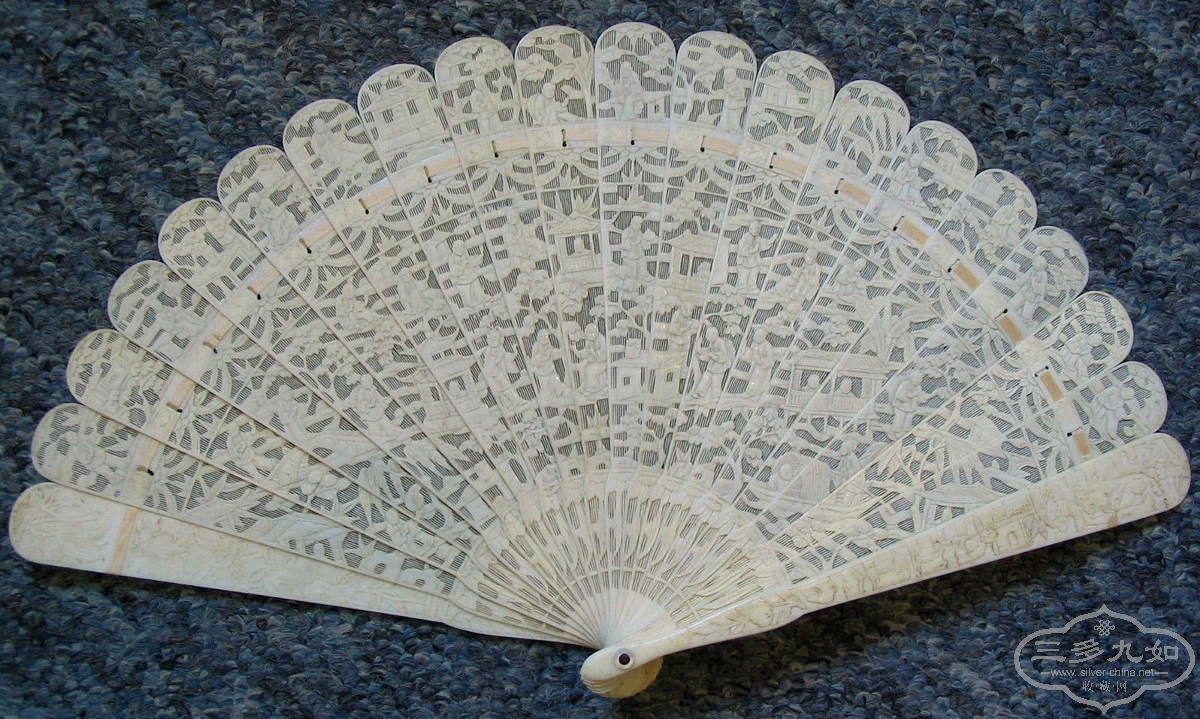 三多九如
www.silver-china.net
收·藏·网